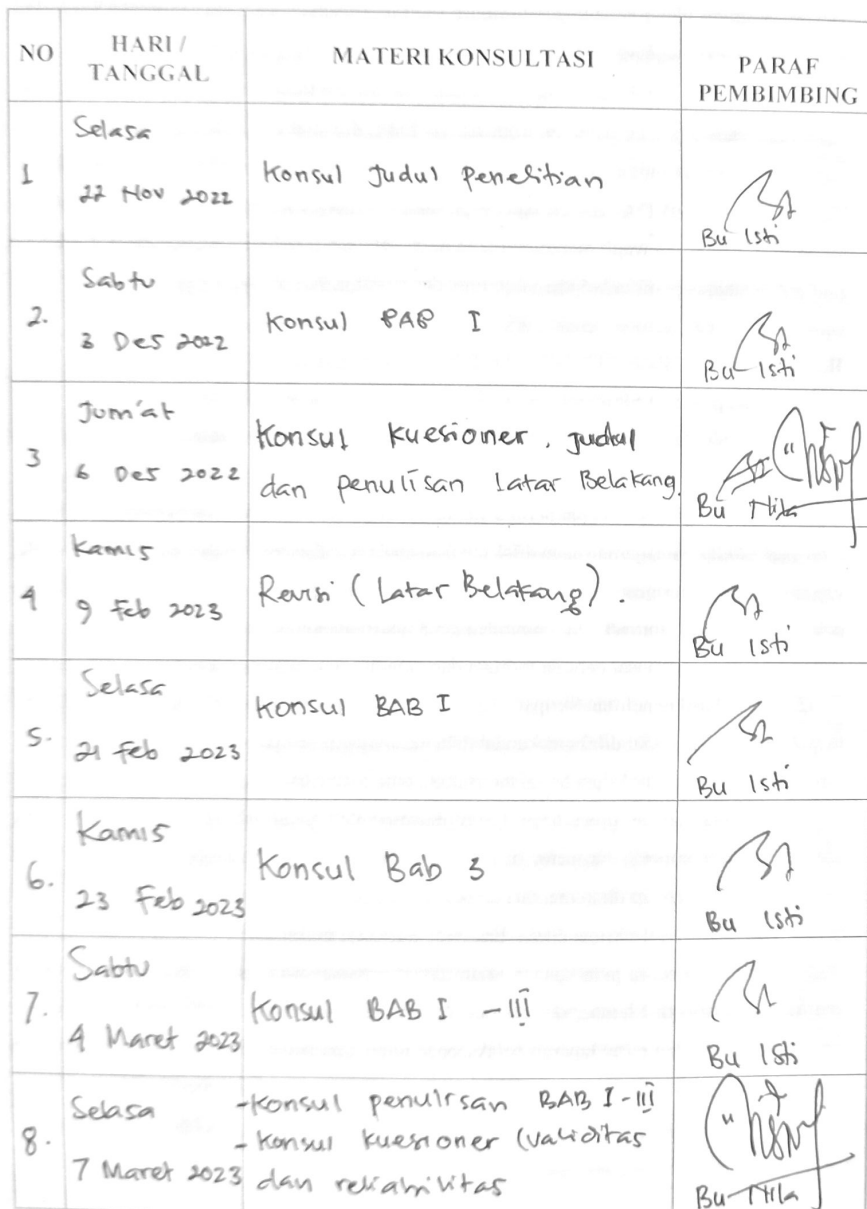 NO
HARI /
TANGGAL
MATERI KONSULTASI
PARAF
PEMBIMBING
1
Selasa
22 Nov 2022
Konsul Judul Penelitian
Bu Isti
2.
Sabtu
3 Des 2022
Konsul BAB I
Bu Isti
3
Jum'at
6 Des 2022
Konsul Kuesioner, Judul
dan penulisan Latar Belakang.
Bu Nila
4
Kamis
9 Feb 2023
Revisi (Latar Belakang).
Bu Isti
5.
Selasa
21 Feb 2023
Konsul BAB I
Bu Isti
6.
Kamis
23 Feb 2023
Konsul Bab 3
Bu Isti
7.
Sabtu
4 Maret 2023
Konsul BAB I - III
Bu Isti
8.
Selasa
7 Maret 2023
- Konsul penulisan BAB I - III
- Konsul kuesioner (validitas
dan reliabilitas
Bu Nila